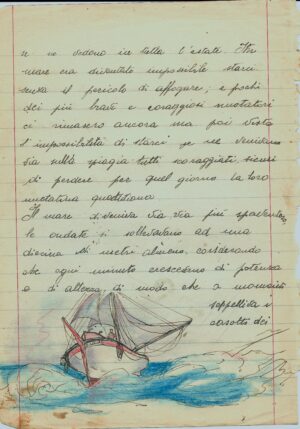 se ne vedono in tutta l'estate. In
mare era diventato impossibile starci
senza il pericolo di affogare, e pochi
dei più bravi e coraggiosi nuotatori
ci rimasero ancora ma poi vista
l'impossibilità di starci se ne venivano
via sulla spiaggia tutti scoraggiati sicuri
di perdere per quel giorno la loro
nuotatina quotidiana
Il mare diveniva via via più spaventoso,
le ondate si sollevavano ad una
diecina di metri almeno, considerando
che ogni minuto crescevano di potenza
e di altezza, di modo che a momenti
seppelliva i
casotti dei